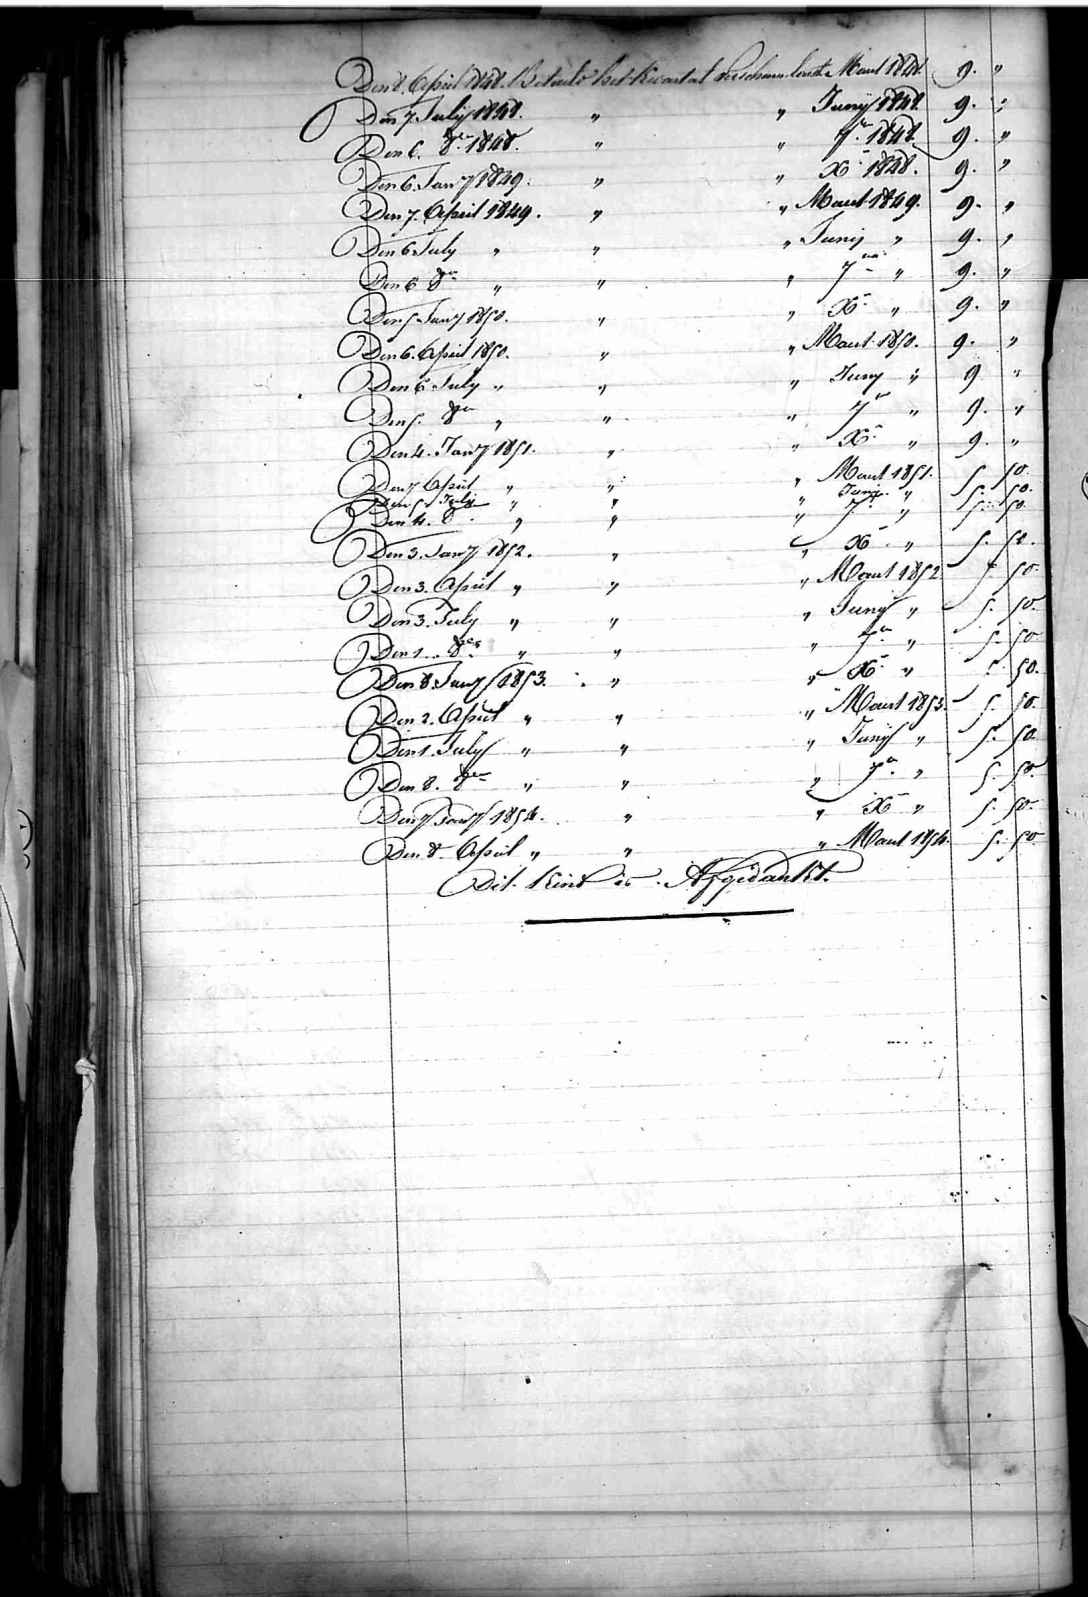 Den 8 April 1848. Betaald het Kwartaal verschenen laatst. Maart 1848. 9. "
Den 7 July 1848. " " Junij 1848. 9. "
Den 6. 8er 1848. " " 7r 1848. 9. "
Den 6 Jany 1849. " " Xr 1848. 9. "
Den 7. April 1849. " " Maart 1849. 9. "
Den 6 July " " " Junij " 9. "
Den 6 8er " " " 7er " 9. "
Den 5 Jany 1850. " " Xr " 9. "
Den 6. April 1850. " " Maart 1850. 9. "
Den 6 July " " " Juny " 9 "
Den 5. 8er " " " 7r " 9. "
Den 4. Jany 1851. " " Xr " 9. "
Den 7 April " " " Maart 1851. 5. 50.
Den 5 July " " " Junij " 5. 50.
Den 4. 8r " " " 7r " 5. 50
Den 3. Jany 1852. " " Xr " 5. 50.
Den 3. April " " " Maart 1852 5. 50.
Den 3. July " " " Junij " 5. 50.
Den 1. 8er " " " 7r " 5. 50
Den 8. Jany 1853. " " Xr " 5. 50.
Den 2. April " " " Maart 1853. 5. 50.
Den 1. July " " " Junij " 5. 50
Den 8. 8er " " " 7r " 5. 50.
Den 7 Jany 1854. " " Xr " 5. 50.
Den 8. April " " " Maart 1854. 5. 50
Dit Kind is Afgedankt.